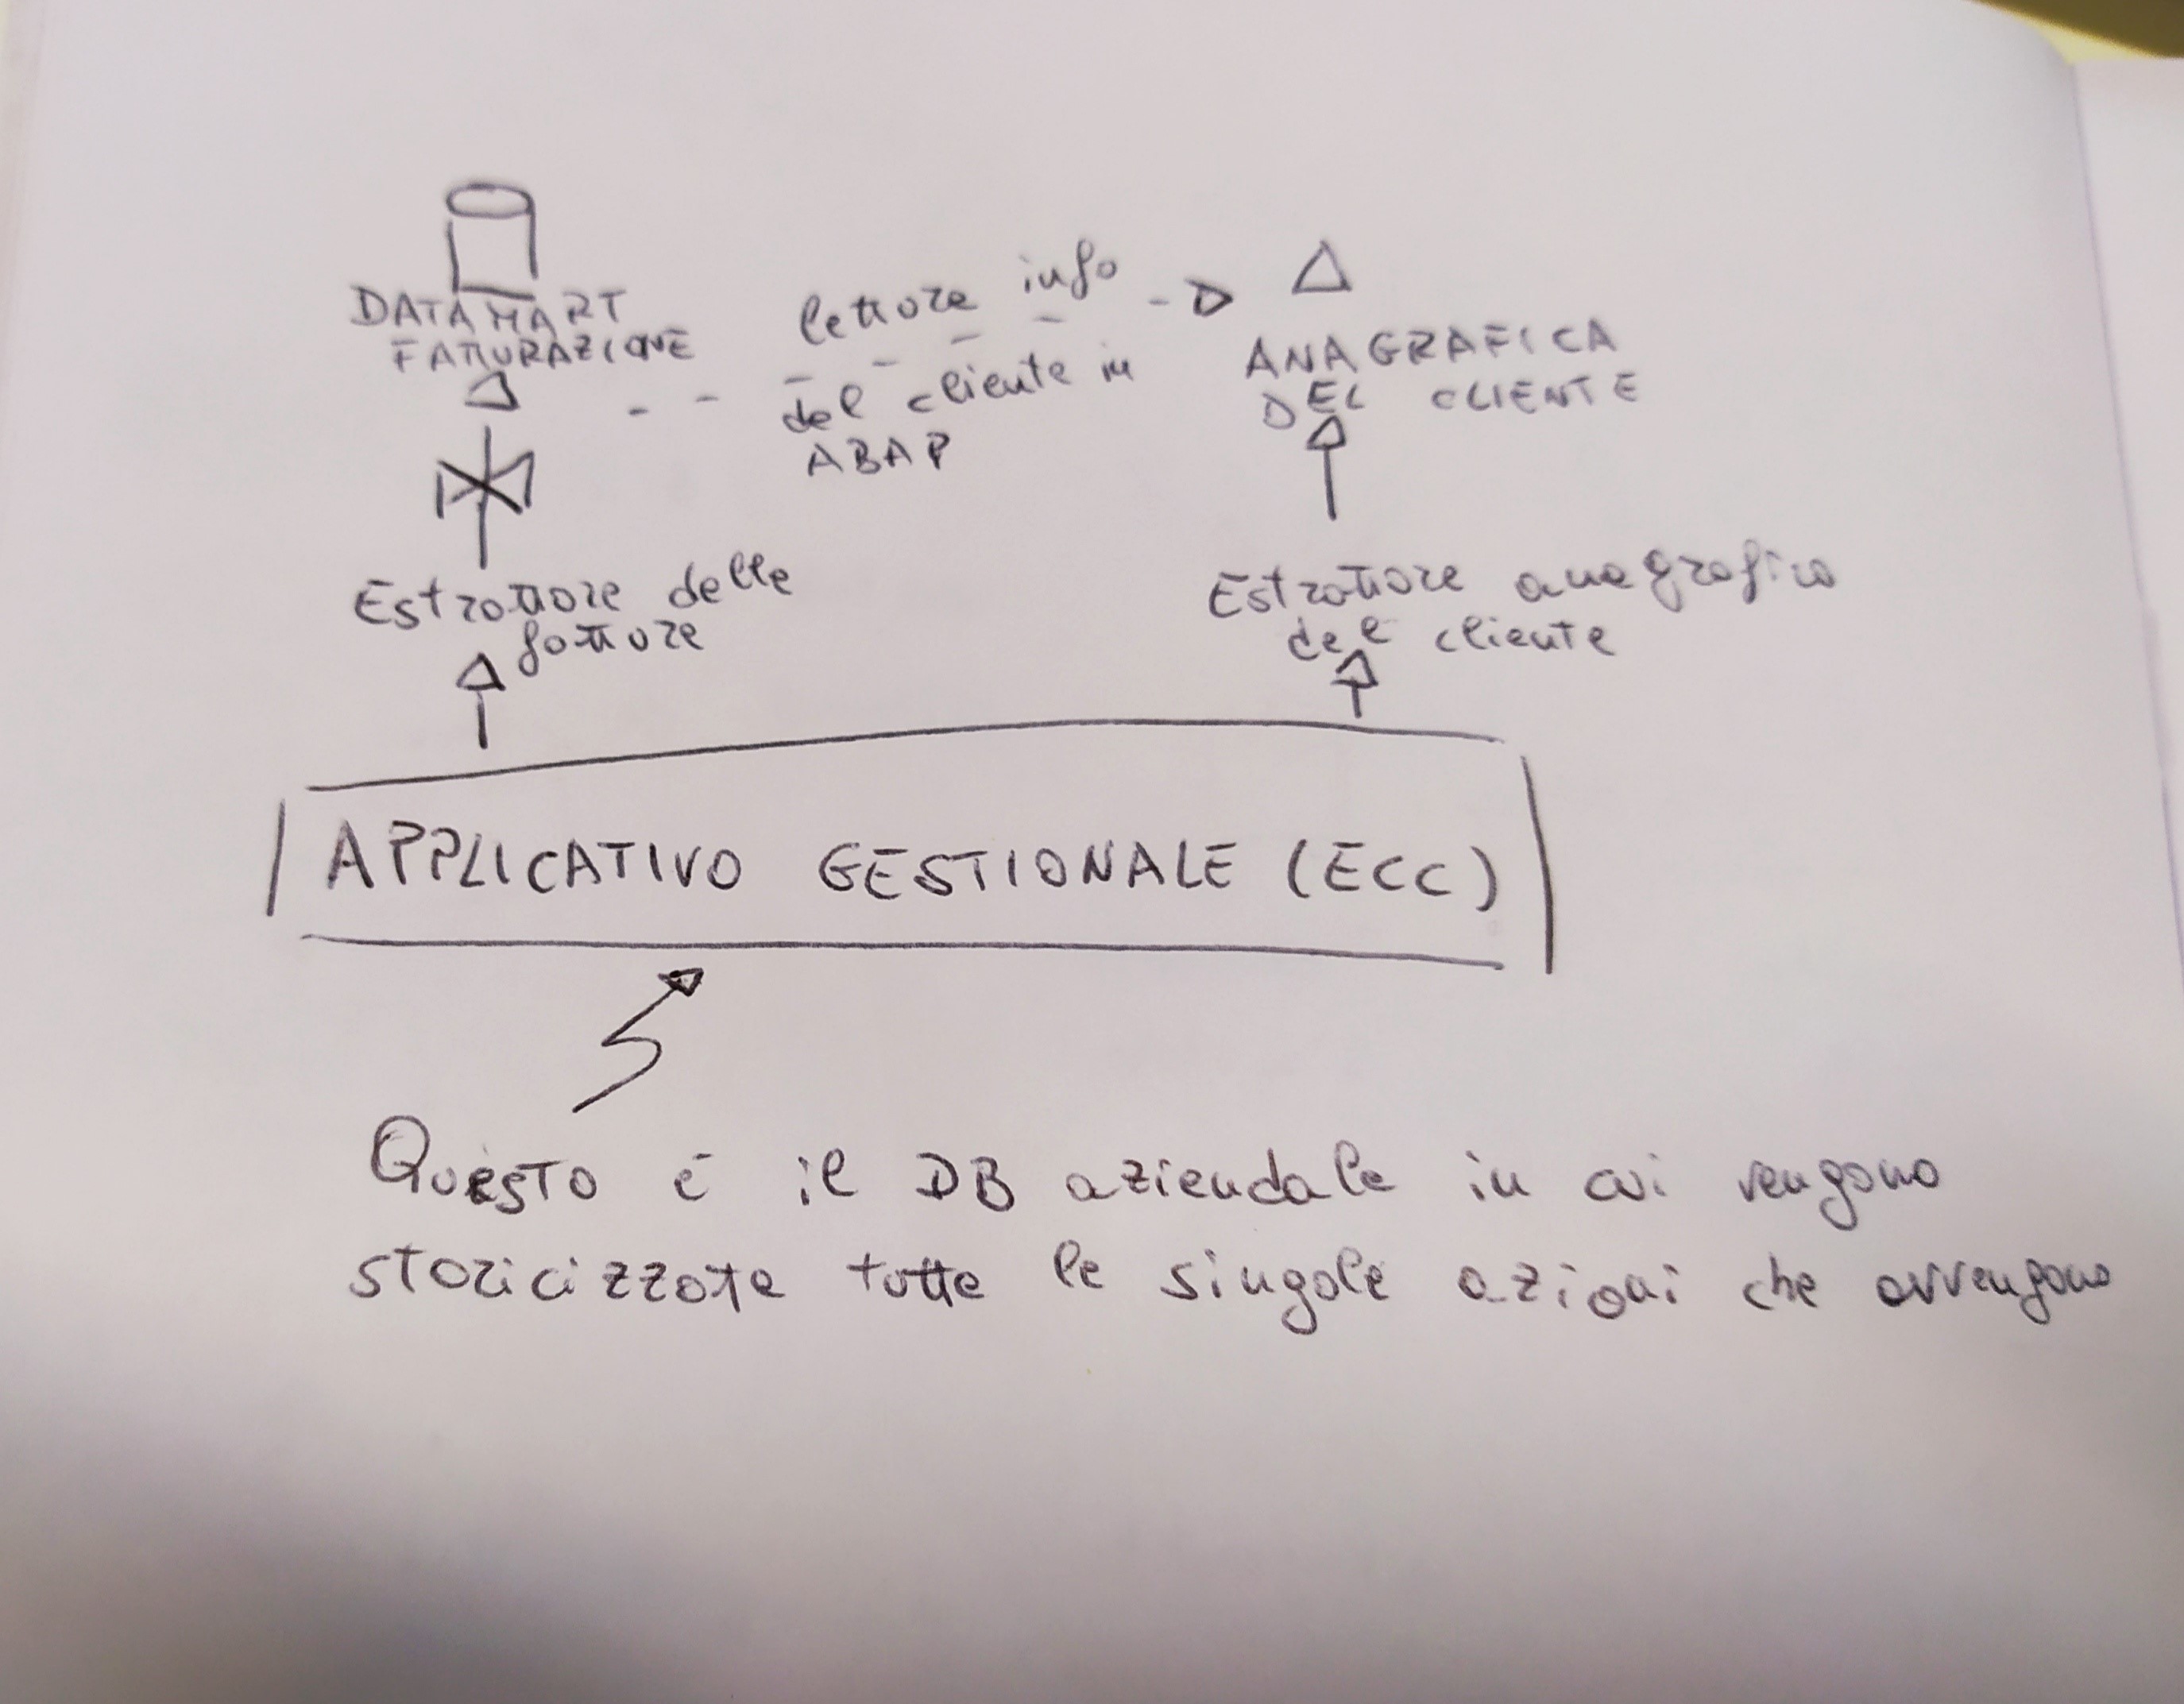 DATA MART
FATTURAZIONE
lettore info
del cliente in
ABAP
ANAGRAFICA
DEL CLIENTE
Estrattore delle
fatture
Estrattore anagrafico
del cliente
APPLICATIVO GESTIONALE (ECC)
Questo è il DB aziendale in cui vengono
storicizzate tutte le singole azioni che avvengono